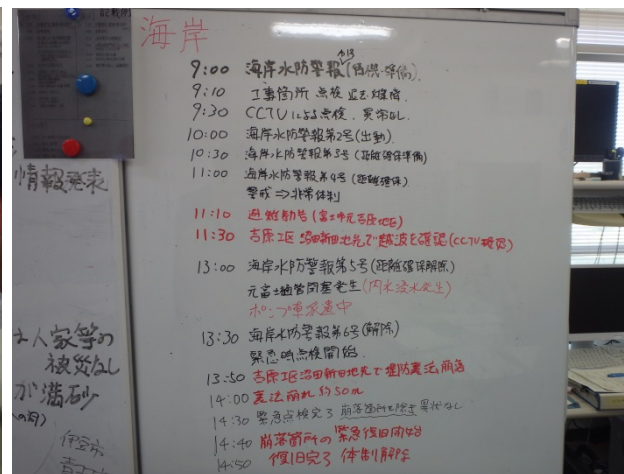 海岸
9:00 海岸水防警報(待機・準備)
9:10 工事箇所点検
9:30 CCTVによる点検、異常なし
10:00 海岸水防警報第2号(出動)
10:30 海岸水防警報第3号(距離確保準備)
11:00 海岸水防警報第4号(距離確保)
警戒⇒非常体制
11:10 避難勧告(富士市元吉原地区)
11:30 吉原工区 沼田新田地先で越波を確認(CCTV確認)
13:00 海岸水防警報第5号(距離確保解除)
閉塞発生(内水流水発生)
ポンプ車派遣中
13:30 海岸水防警報第6号(解除)
緊急時点検開始
13:50 吉原工区沼田新田地先で堤防裏法崩落
14:00 裏法崩れ 約50m
14:30 緊急点検完了 崩落箇所を除き異状なし
14:40 崩落箇所の緊急復旧開始
14:50 復旧完了 体制解除
情報発表
人家等の
被災なし
が満砂
伊豆市